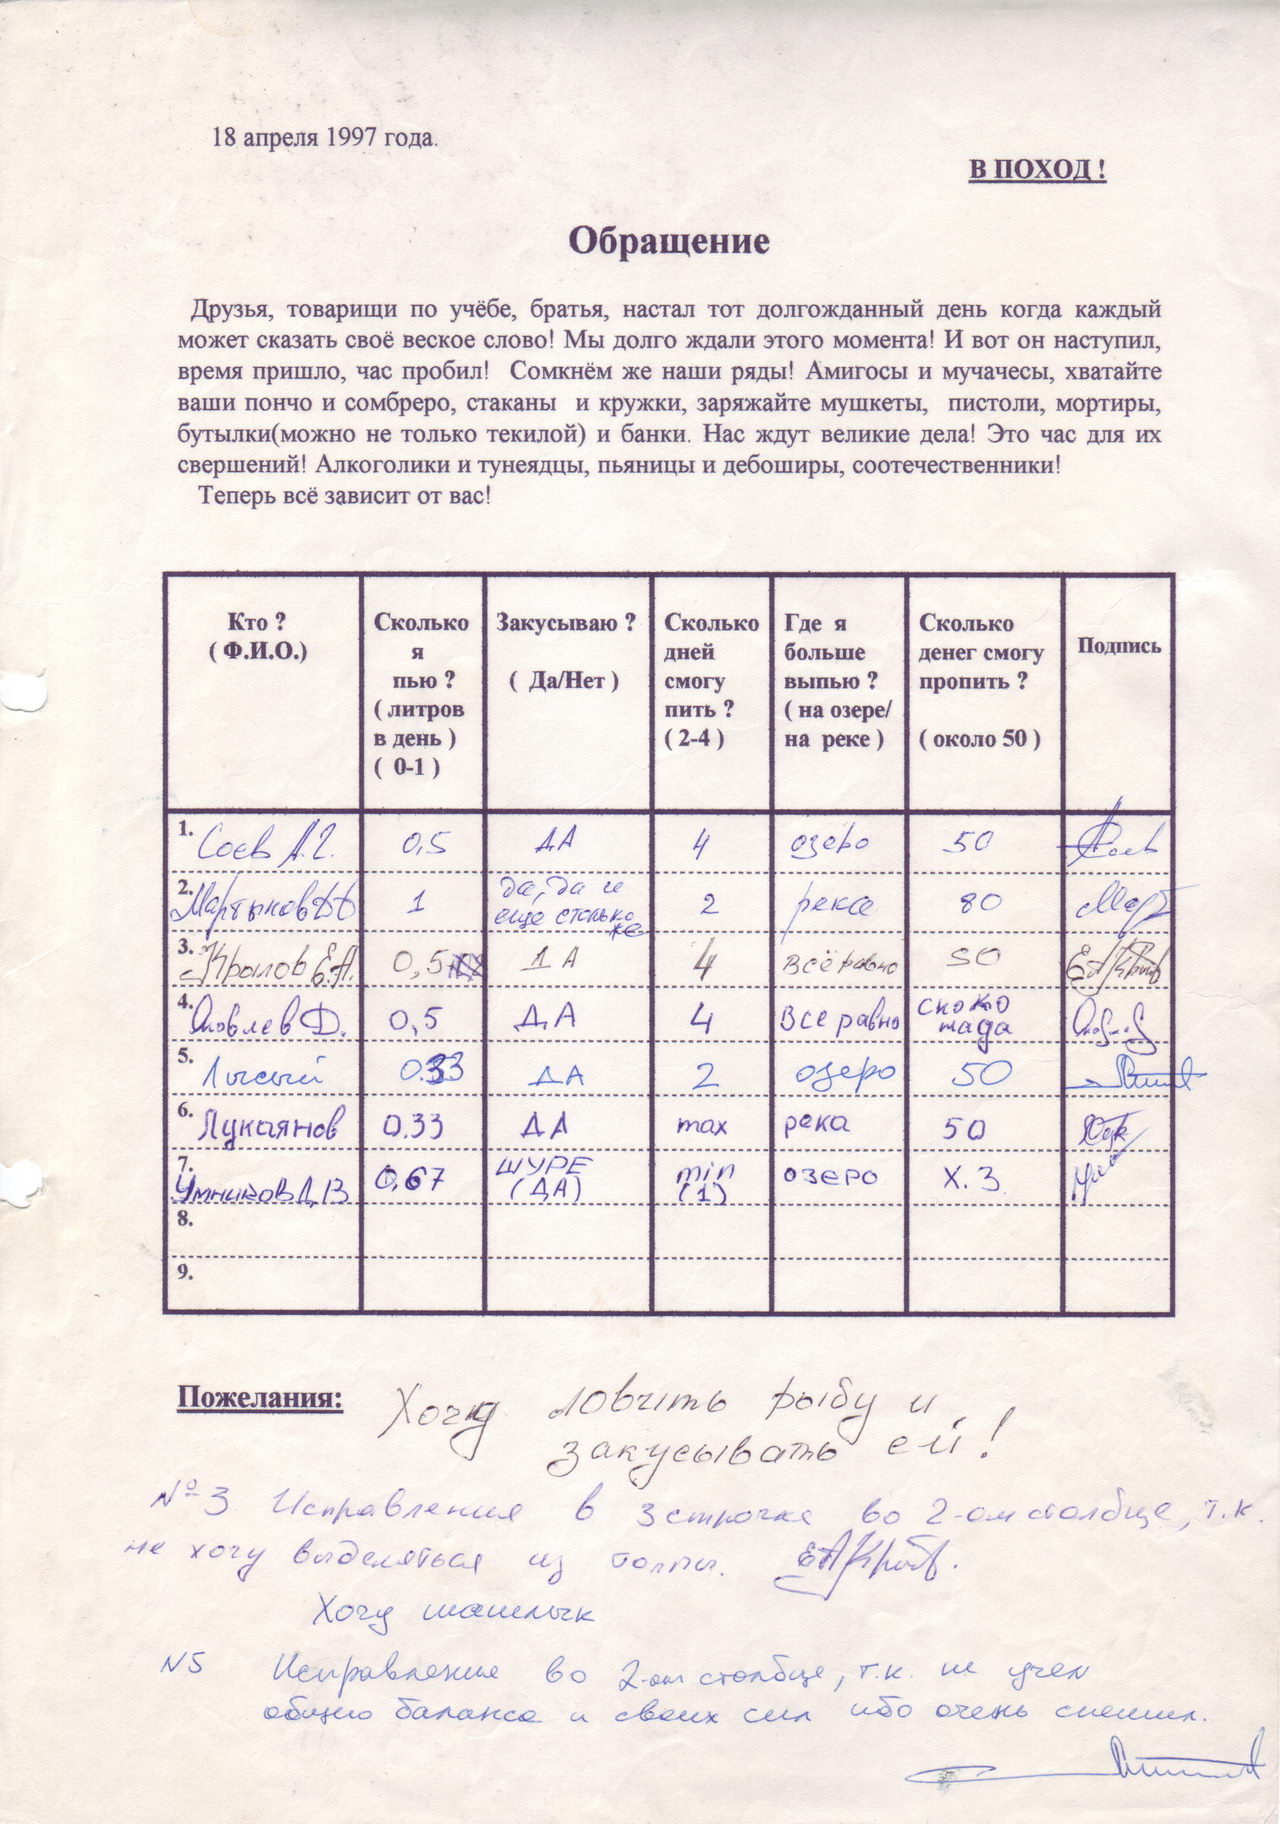 18 апреля 1997 года.
В ПОХОД !
Обращение
Друзья, товарищи по учёбе, братья, настал тот долгожданный день когда каждый
может сказать своё веское слово! Мы долго ждали этого момента! И вот он наступил,
время пришло, час пробил! Сомкнём же наши ряды! Амигосы и мучачесы, хватайте
ваши пончо и сомбреро, стаканы и кружки, заряжайте мушкеты, пистоли, мортиры,
бутылки(можно не только текилой) и банки. Нас ждут великие дела! Это час для их
свершений! Алкоголики и тунеядцы, пьяницы и дебоширы, соотечественники!
Теперь всё зависит от вас!
Кто ? ( Ф.И.О.) Сколько я пью ? ( литров в день ) ( 0-1 ) Закусываю ? ( Да/Нет ) Сколько дней смогу пить ? ( 2-4 ) Где я больше выпью ? ( на озере/ на реке ) Сколько денег смогу пропить ? ( около 50 ) Подпись
1. Соев А.Г. 0,5 ДА 4 озеро 50 Соев
2. Мартынов ДД 1 да, да и еще столько же 2 река 80 Март
3. Крылов Е.А. 0,5 ДА 4 всё равно 50 ЕАКрыв
4. Яковлев Д. 0,5 ДА 4 Все равно скоко нада
5. Лысый 0.33 ДА 2 озеро 50
6. Лукаянов 0.33 ДА max река 50
7. Умников Д.В 0,67 ШУРЕ (ДА) min (1) озеро Х.З.
8.
9.
Пожелания: Хочу ловить рыбу и
закусывать ей!
№3 Исправления в 3 строчке во 2-ом столбце, т.к.
не хочу выделяться из толпы. ЕАКрыв.
Хочу шашлык
N5 Исправление во 2-ом столбце, т.к. не учел
общего баланса и своих сил ибо очень спешил.